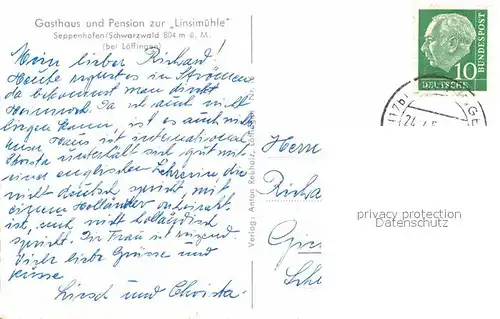 Gasthaus und Pension zur „Linsimühle"
Seppenhofen/Schwarzwald 804 m ü. M.
(bei Löffingen)
Mein lieber Richard!
Heute regnet es in Strömen
da bekommt man direkt
Heimweh. Da ich auch nicht
liegen kann, ist es auch nicht
unser Haus ist international
Christa unterhält sich gut mit
einer englischen Lehrerin, die
nicht deutsch spricht, mit
einem Holländer verheiratet
ist, auch nicht holländisch
spricht. Die Frau ist
Viele liebe Grüsse und
Küsse
und Christa.
Verlag: Anton Rebholz,
Herrn
Richa
Gie
10
DEUTSCHE
BUNDESPOST
(17b)
24
privacy protection
Datenschutz